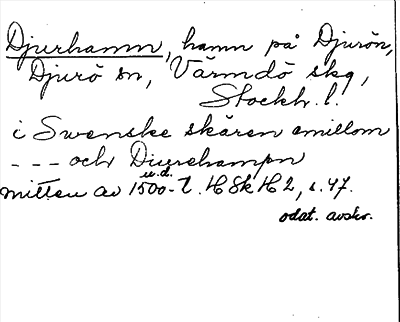 Djurhamn, hamn på Djurön,
Djurö sn, Värmdö skg,
Stockh. l.
i Swenske skären emillom
--- och Diurehampn
u.d.
mitten av 1500-t. HSkH 2, s. 47.
odat. avskr.